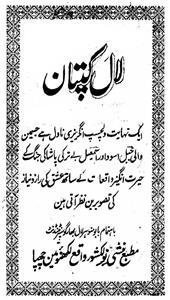 لال کپتان
ایک نہایت دلچسپ انگریزی ناول ہے جسمین
والی جبل اسود اور اسمٰعیل بے ترکی پاشا کی جنگ کے
حیرت انگیز واقعات کے ساتھ عشق کی راز و نیاز
کی تصویرین نظر آتی ہین
باہتمام بابو منوہر لال بھارگو سپرنٹنڈنٹ
مطبع منشی نولکشور واقع لکھنؤ مین چھپا